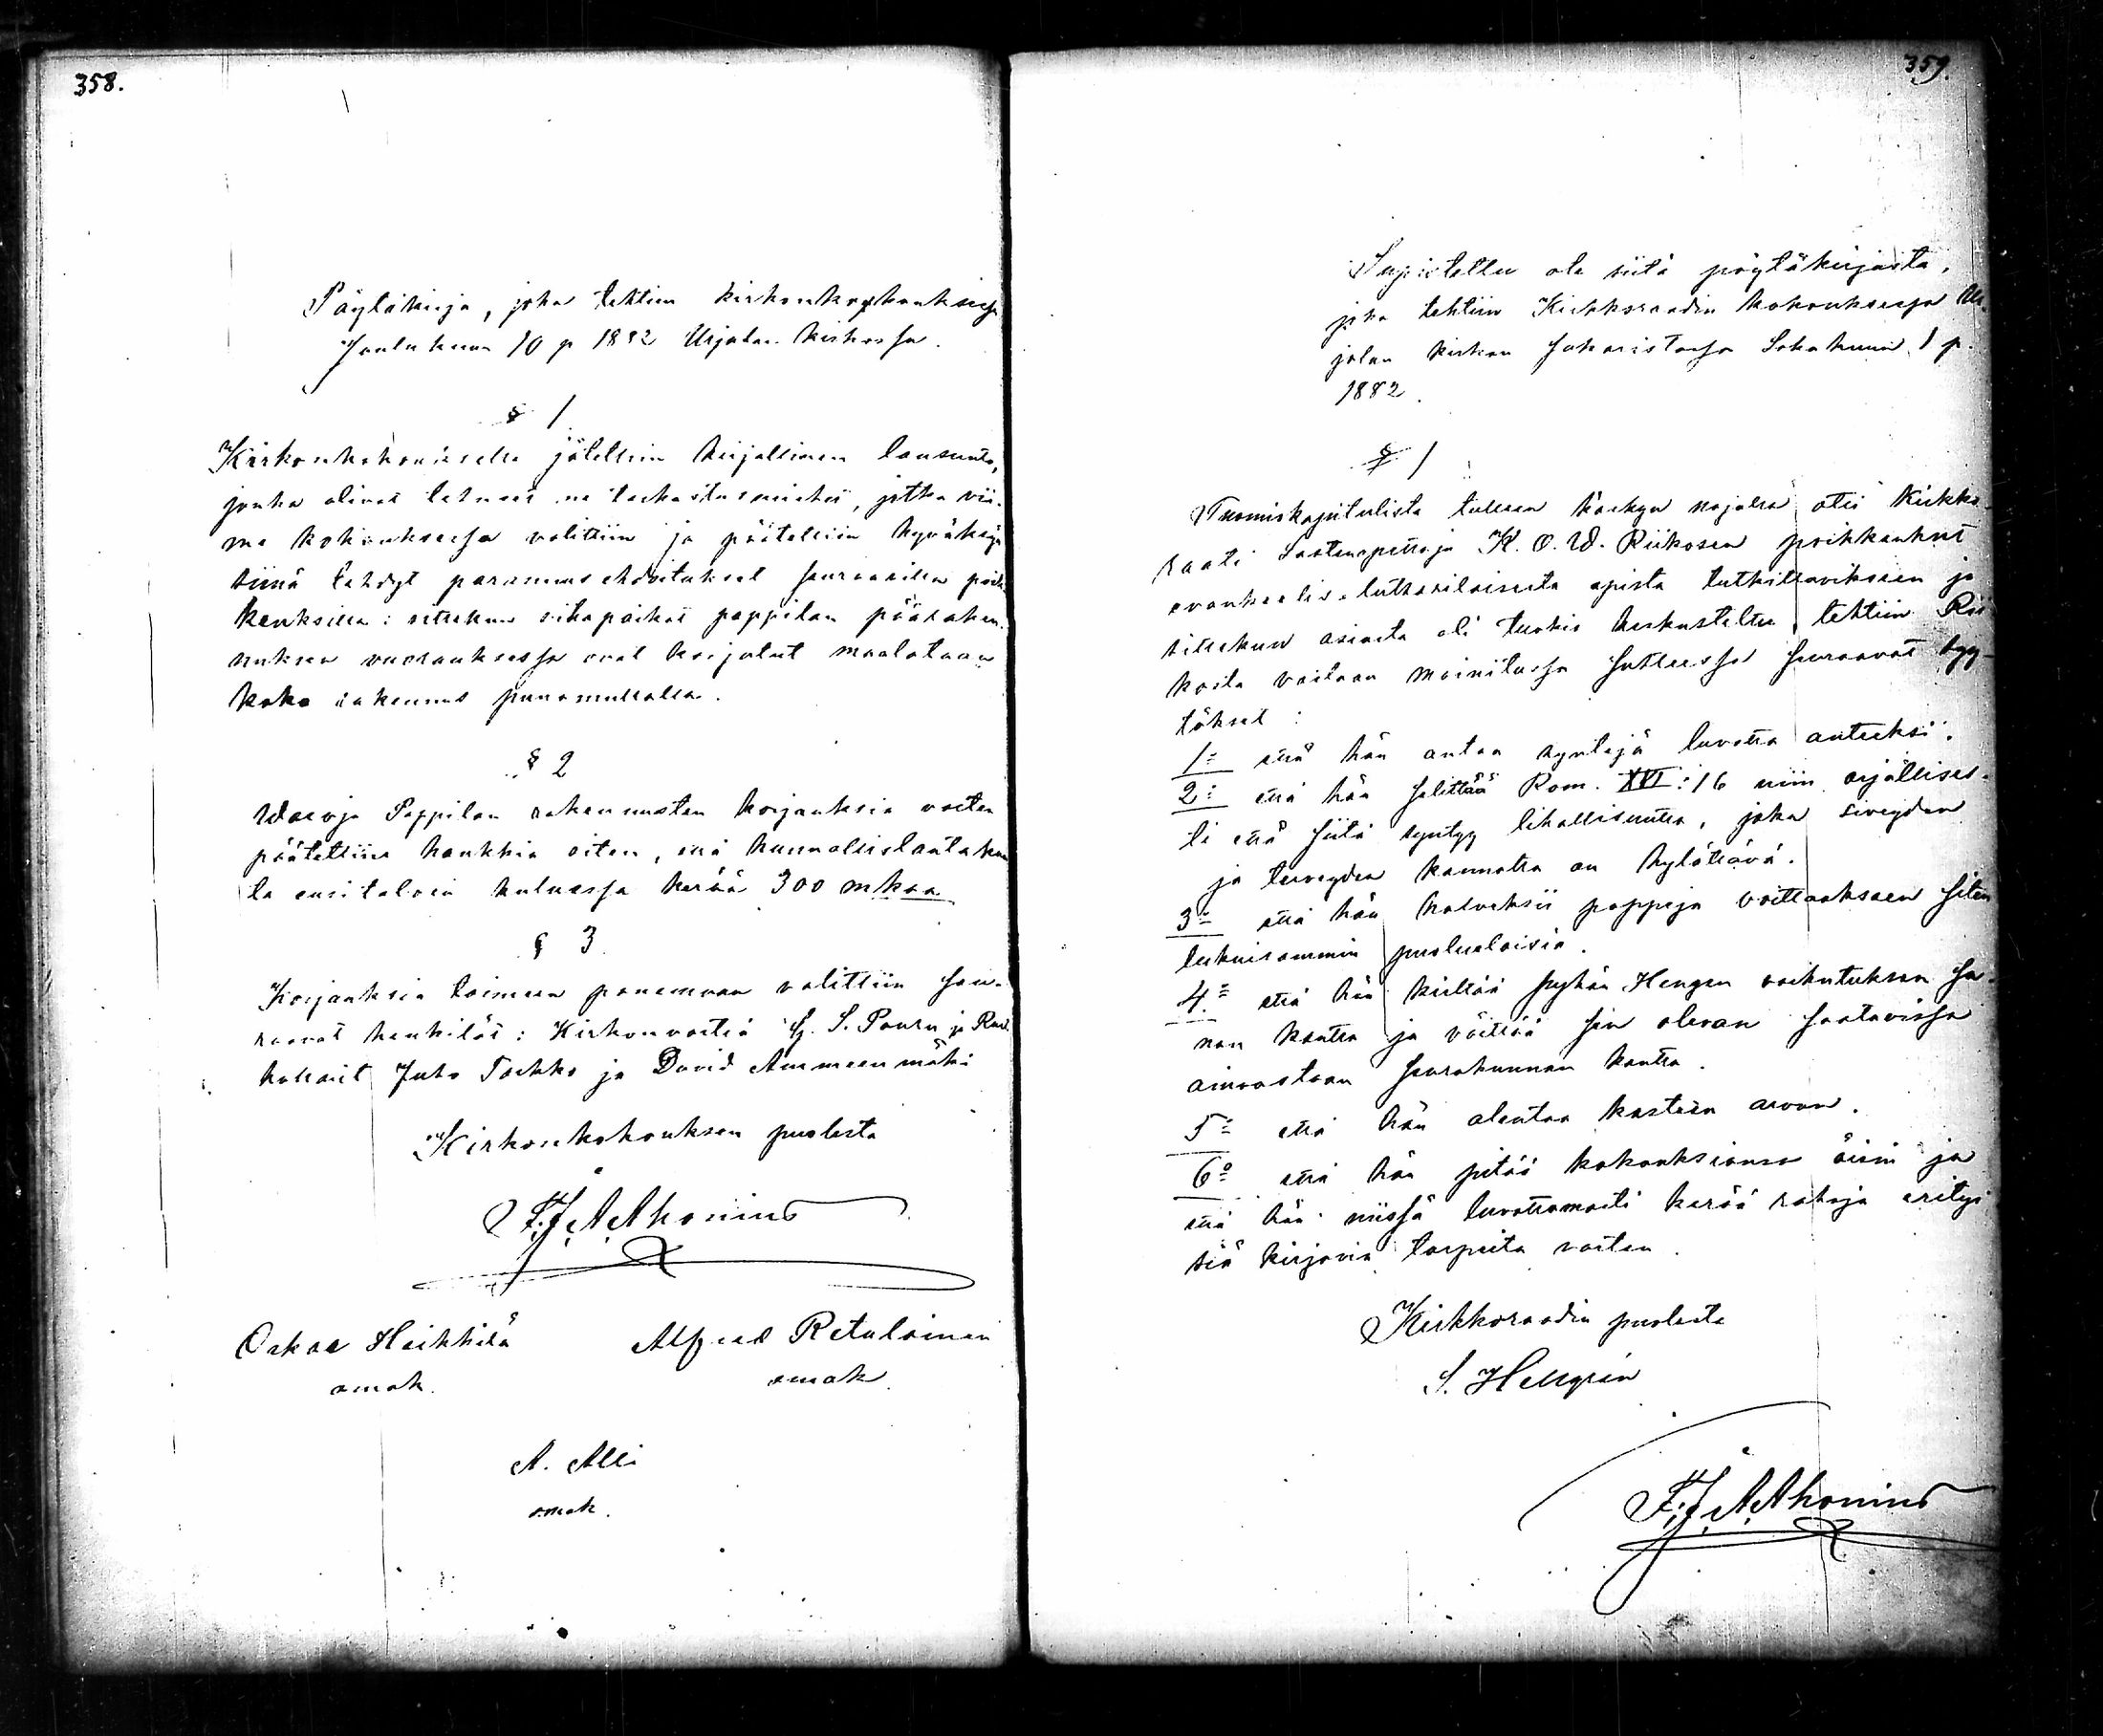 358.
Pöytäkirja, joka tehtiin kirkonkokouksessa
Joulukuun 10 p 1882 Urjalan kirkossa.
§ 1
Kirkonkokoukselle jätettiin kirjallinen lausunto,
jonka olivat tehneet ne tarkastusmiehet, jotka vii-
me kokouksessa valittiin ja päätettiin hyväksyä
siinä tehdyt parannusehdoitukset seuraavilla poik
keuksilla: sittekun sikäpaikat pappilan pääraken-
nuksen vuorauksessa ovat korjatut maalataan
koko rakennus punamullalla.
§ 2
Waroja Pappilan rakennusten korjauksia varten
päätettiin hankkia siten, että kunnallislautakun
ta ensitalvin kuluessa kerää 300 mkaa
§ 3
Korjauksia toimeen panemaan valittiin seu-
raavat henkilöt: Kirkonvartia G. S. Pouru ja Rust
hollarit Juho Torkko ja David Ammeenmäki
Kirkonkokouksen puolesta
F. J. A. Ahonius
Oskar Heikkilä Alfred Retulainen
omak. omak.
A. Alli
omak.
359.
Supistettu ote siitä pöytäkirjasta,
joka tehtiin Kirkkoraadin kokouksessa Ur-
jalan kirkon sakaristossa Lokakuun 1 p.
1882.
§ 1
Tuomiokapitulista tulleen käskyn nojalla otti Kirkko-
raati Lastenopettaja K. O. W. Riikosen poikkeukset
evankelis-lutherilaisesta opista tutkittavikseen ja
sittekun asiasta oli tarkis keskusteltu, tehtiin Rii
kosta vastaan mainitussa suhteessa seuraavat syy-
tökset:
1:= että hän antaa syntejä luvatta anteeksi.
2:= että hän selittää Rom. XVI:16 niin orjallises-
ti että siitä syntyy lihallisuutta, joka siveyden
ja terveyden kannalta on hylättävä.
3:= että hän halveksii pappeja voittaakseen siten
lukuisammin puoluelaisia.
4:= että hän kieltää Pyhän Hengen vaikutuksen sa-
nan kautta ja väittää sen olevan saatavissa
ainoastaan seurakunnan kautta.
5:= että hän alentaa kasteen arvon.
6:o että hän pitää kokouksiansa öisin ja
että hän niissä luvattomasti kerää rahoja erityi
siä kirjavia tarpeita varten.
Kirkkoraadin puolesta
S. Hellgrén
F. J. A. Ahonius